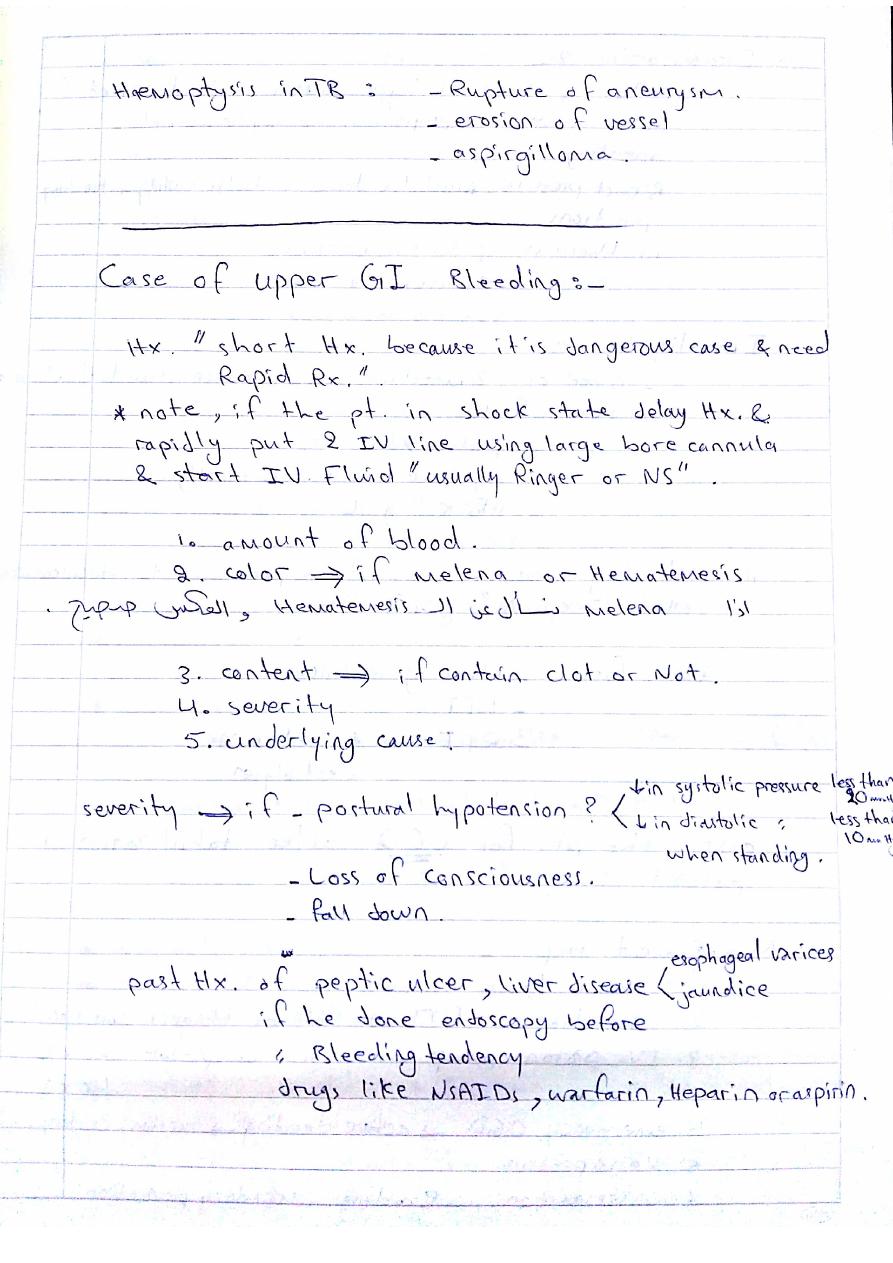 Haemoptysis in TB : - Rupture of aneurysm.
- erosion of vessel
- aspirgilloma.
Case of upper GI Bleeding :-
Hx. "short Hx. because it is dangerous case & need
Rapid Rx.".
* note, if the pt. in shock state delay Hx. &
rapidly put 2 IV line using large bore cannula
& start IV Fluid "usually Ringer or NS".
1. amount of blood.
2. color ⇒ if melena or Hematemesis
اذا melena نسأل عن الـ Hematemesis و العكس صحيح .
3. content ⇒ if contain clot or Not.
4. severity
5. underlying cause.
severity → if - postural hypotension ? < ↓ in systolic pressure less than 20 mmH
↓ in diastolic " less than 10 mm H
when standing.
- Loss of consciousness.
- fall down.
past Hx. of peptic ulcer, liver disease < esophageal varices
jaundice
if he done endoscopy before
" Bleeding tendency
drugs like NSAIDs, warfarin, Heparin or aspirin.